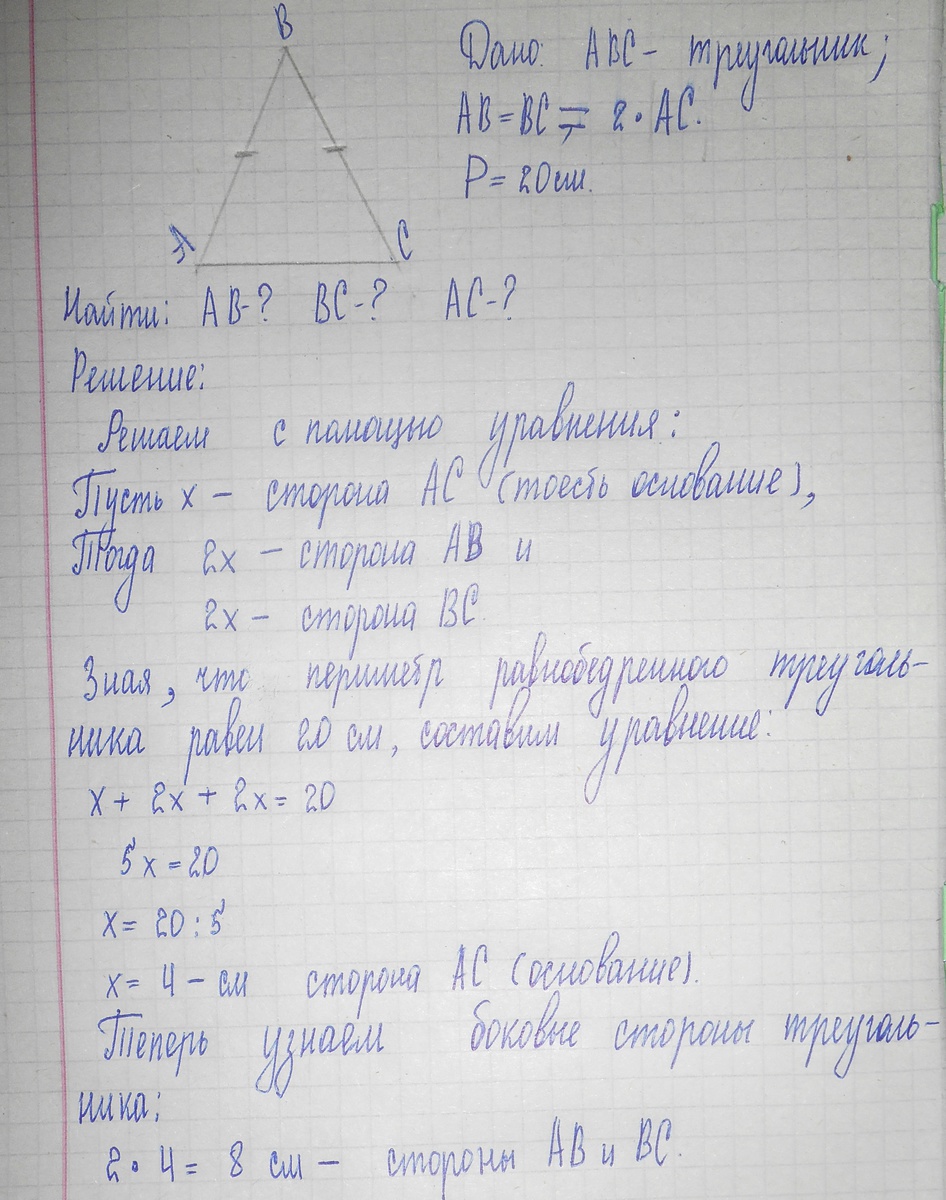 B
Дано: ABC – треугольник;
AB = BC = 2 · AC.
P = 20 см.
A C
Найти: AB-? BC-? AC-?
Решение:
Решаем с помощью уравнения:
Пусть x – сторона AC (тоесть основание),
Тогда 2x – сторона AB и
2x – сторона BC
Зная, что периметр равнобедренного треуголь-
ника равен 20 см, составим уравнение:
x + 2x + 2x = 20
5x = 20
x = 20 : 5
x = 4 – см сторона AC (основание).
Теперь узнаем боковые стороны треуголь-
ника:
2 · 4 = 8 см – стороны AB и BC.